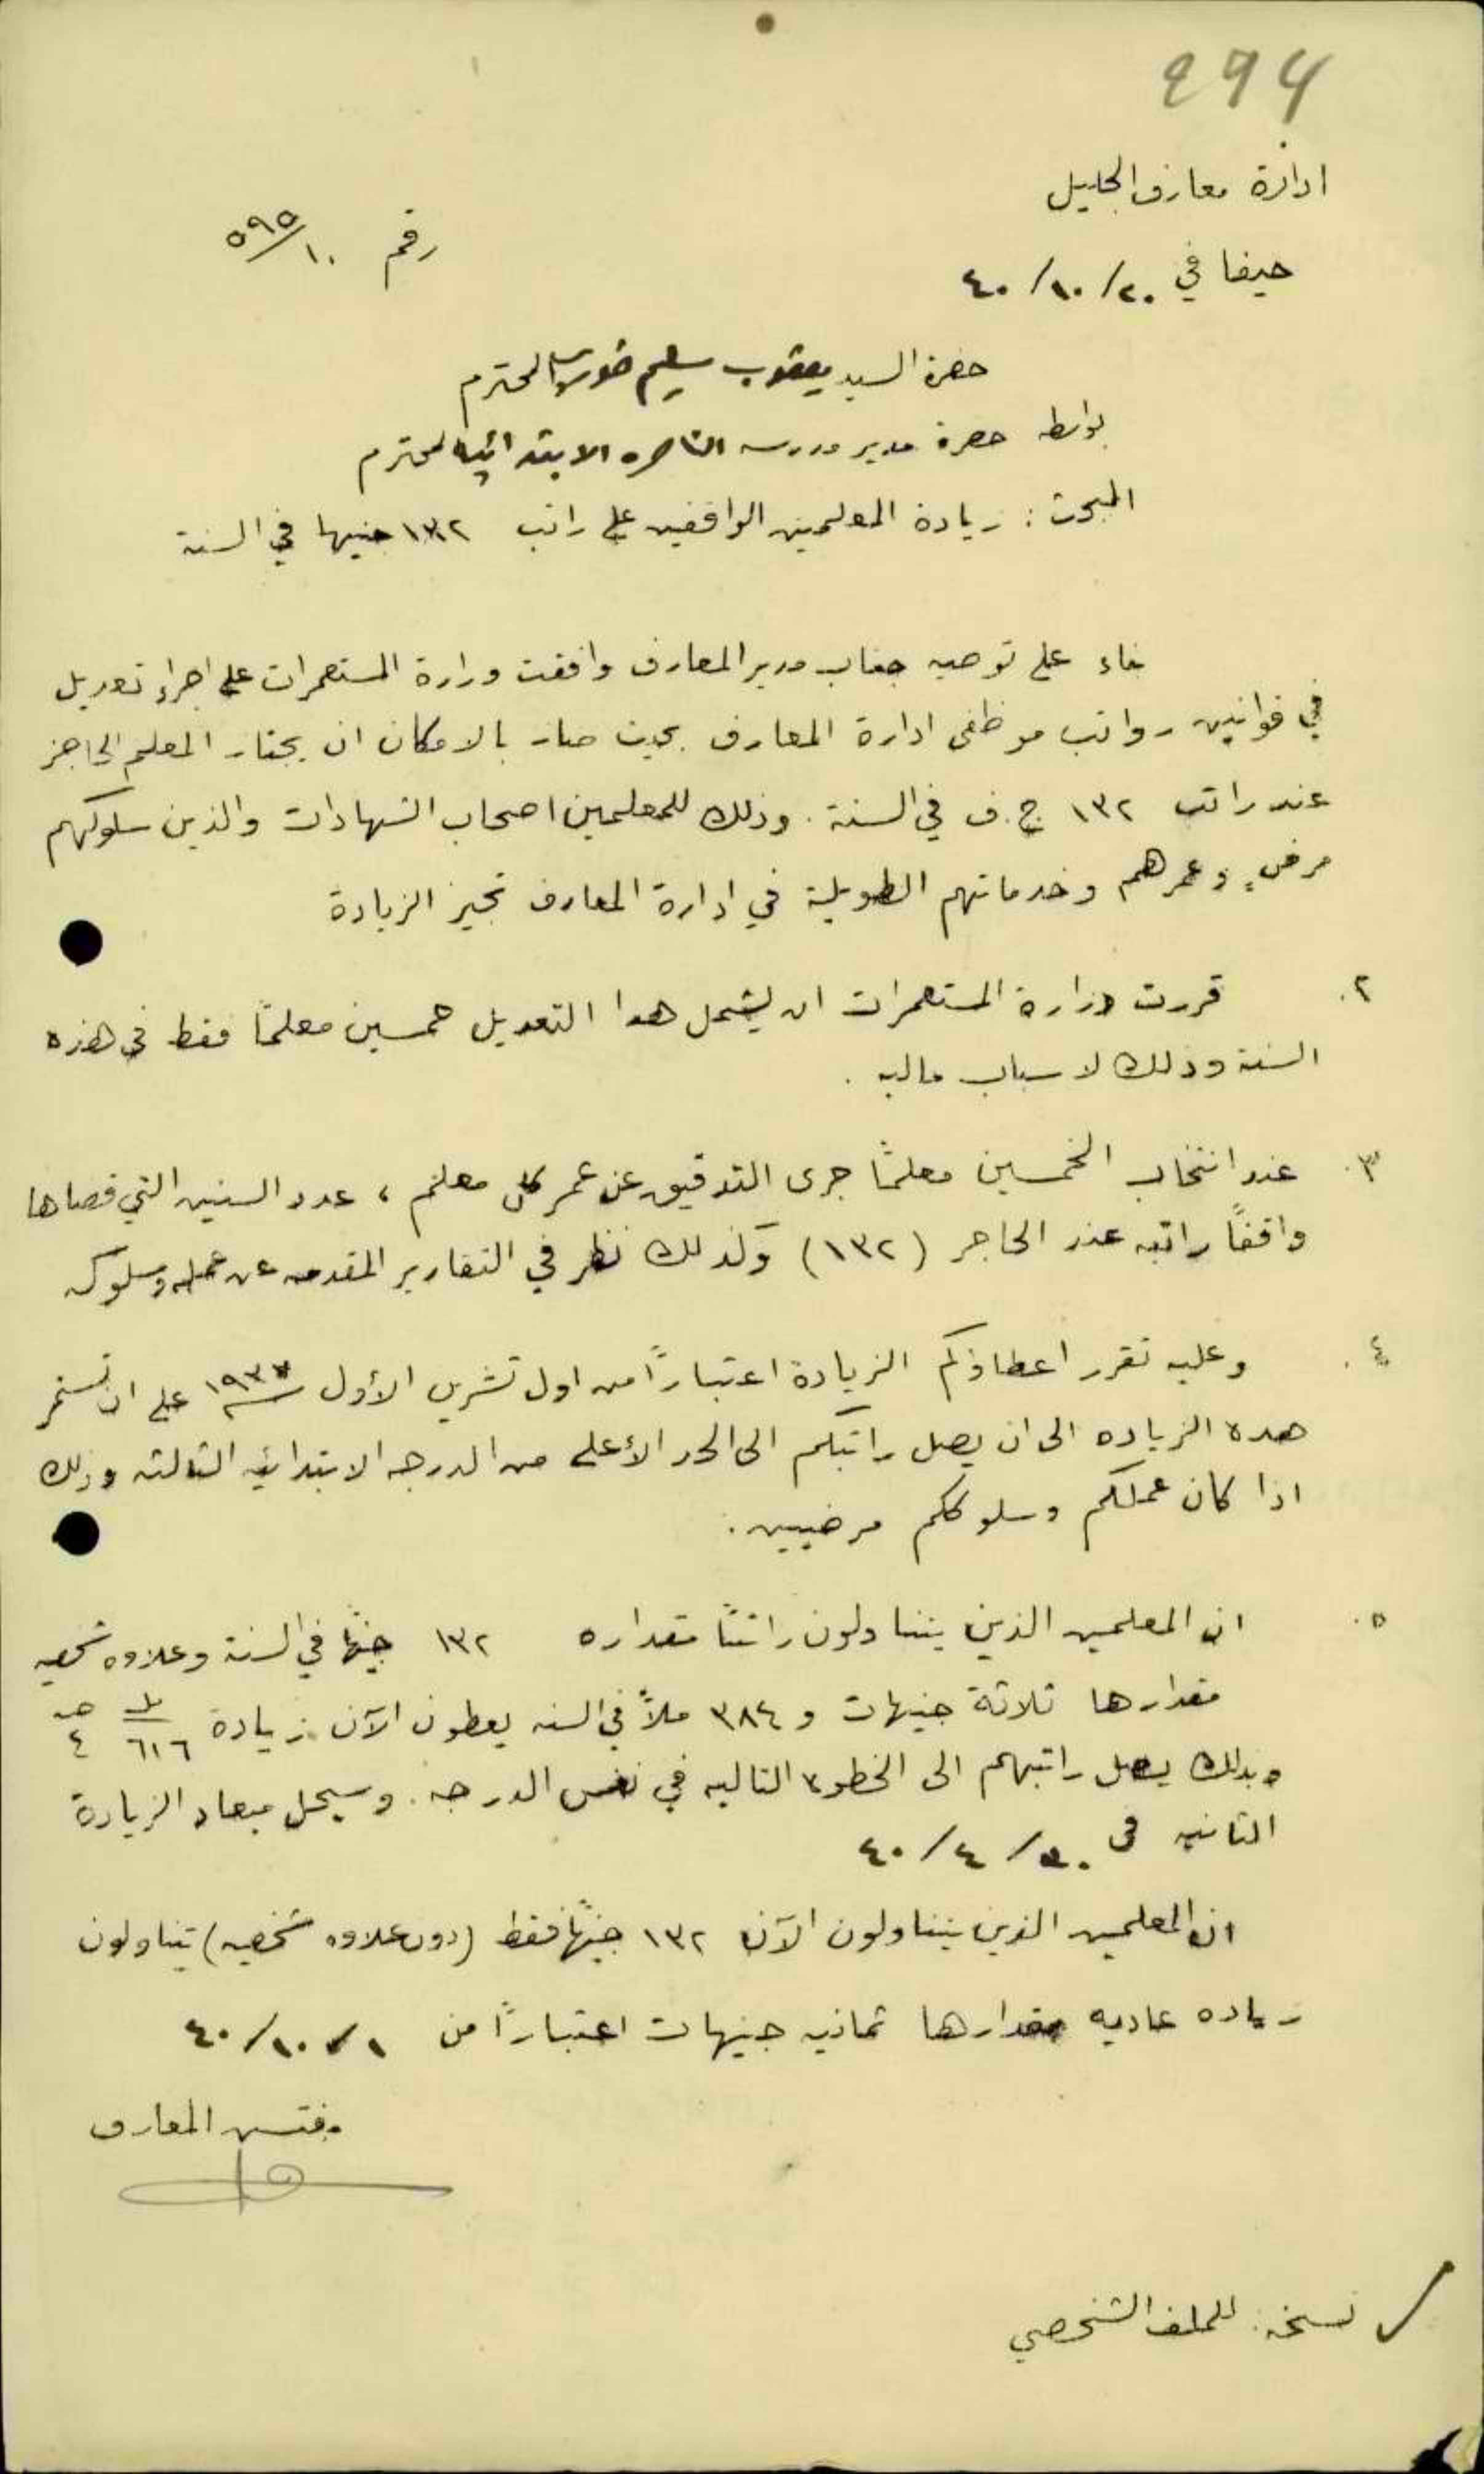 294
ادارة معارف الجليل
رقم ١٠/٥٩٥
حيفا في ٢٠/١٠/٤٠
حضرة السيد يعقوب سليم المحترم
بواسطة حضرة مدير مدرسه الناصره الابتدائيه المحترم
المبحث : زيادة المعلمين الواقفين على راتب ١٣٢ جنيها في السنة
بناء على توصيه جناب مدير المعارف وافقت وزارة المستعمرات على اجراء تعديل
في قوانين رواتب موظفي ادارة المعارف بحيث صار بالامكان ان يجتاز المعلم الحاجز
عند راتب ١٣٢ ج.ف في السنة . وذلك للمعلمين اصحاب الشهادات والذين سلوكهم
مرضٍ وعمرهم وخدماتهم الطويلة في ادارة المعارف تجيز الزيادة
٢. قررت وزارة المستعمرات ان يشمل هذا التعديل خمسين معلمًا فقط في هذه
السنة وذلك لاسباب ماليه .
٣. عند انتخاب الخمسين معلمًا جرى التدقيق عن عمر كل معلم ، عدد السنين التي قضاها
واقفًا راتبه عند الحاجز (١٣٢) وكذلك نظر في التقارير المقدمه عن عمله وسلوكه
٤. وعليه تقرر اعطاؤكم الزيادة اعتبارًا من اول تشرين الأول على ان تستمر
هذه الزياده الى ان يصل راتبكم الى الحد الأعلى من الدرجه الابتدائيه الثالثه وذلك
اذا كان عملكم وسلوككم مرضيين .
٥. ان المعلمين الذين يتناولون راتبًا مقداره ١٣٢ جنيهًا في السنة وعلاوه شخصيه
مقدارها ثلاثة جنيهات و ٣٨٤ ملاً في السنه يعطون الآن زيادة ٦١٦ مل ٤ جـ
وبذلك يصل راتبهم الى الخطوة التاليه في نفس الدرجه . وسيحل ميعاد الزيادة
الثانيه في ٣٠/٤/٤٠
ان المعلمين الذين يتناولون الآن ١٣٢ جنيهًا فقط (دون علاوه شخصيه) يتناولون
زياده عاديه مقدارها ثمانيه جنيهات اعتبارًا من ١/١٠/٤٠
مفتش المعارف
نسخة : للملف الشخصي